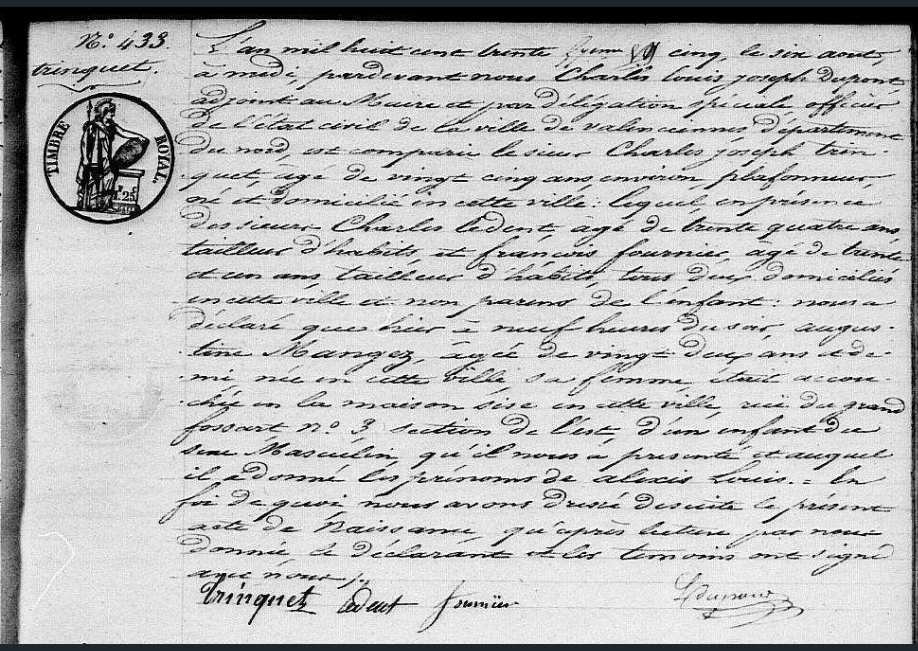 N.º 433.
trinquet.
TIMBRE ROYAL.
25
L'an mil huit cent trente cinq, le six aout,
à midi, pardevant nous Charles Louis joseph Dupont
adjoint au Maire et par délégation spéciale officier
de l'état civil de la ville de valenciennes, département
du nord, est comparu le sieur Charles joseph trin-
quet, agé de vingt cinq ans environ, plafonneur,
né et domicilié en cette ville: lequel, en présence
des sieurs Charles ledent, agé de trente quatre ans,
tailleur d'habits, et françois fournier, agé de trente
et un ans, tailleur d'habits, tous deux domiciliés
en cette ville et non parens de l'enfant: nous a
déclaré que hier à neuf heures du soir, augus-
tine Mangez, agée de vingt deux ans et de-
mi, née en cette ville, sa femme, était accou-
chée en la maison sise en cette ville, rue du grand
fossart n.º 3, section de l'est, d'un enfant du
sexe Masculin, qu'il nous a presenté et auquel
il a donné les prénoms de alexis Louis. = En
foi de quoi, nous avons dressé desuite le présent
acte de Naissance, qu'après lecture par nous
donnée, le déclarant et les temoins ont signé
avec nous ./.
trinquet ledent fournier LDupont